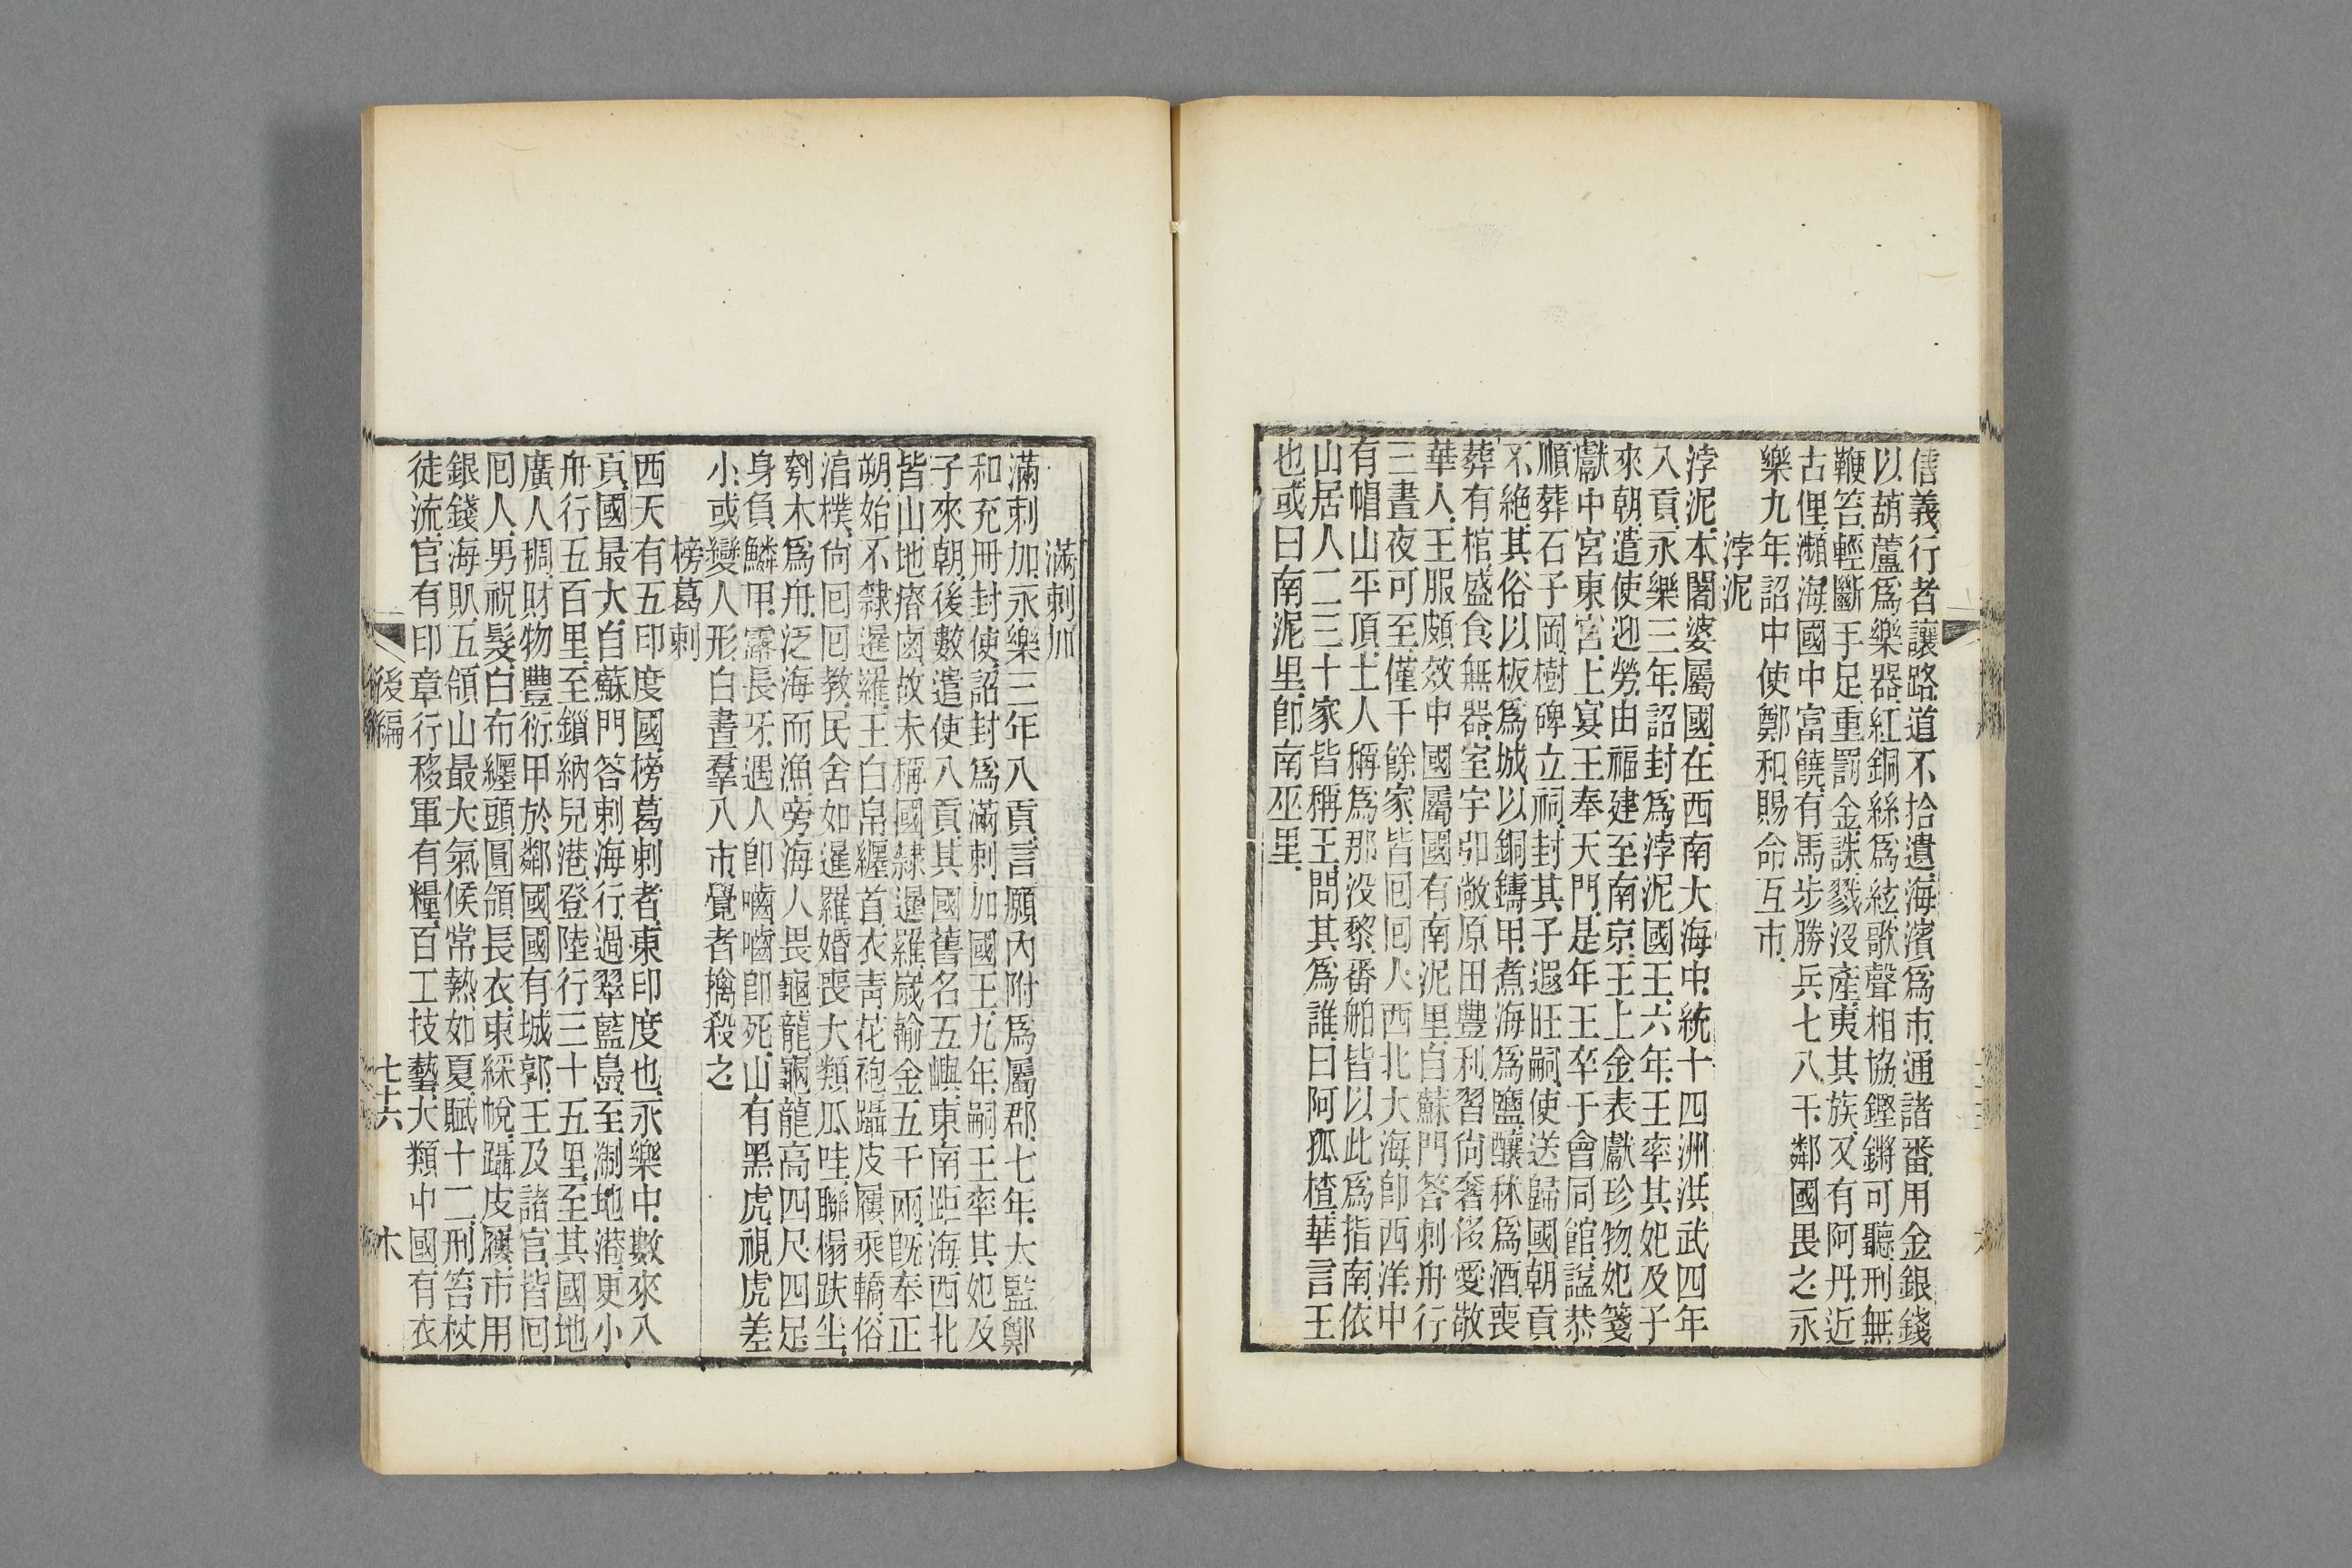 信義行者讓路道不拾遺海濱爲市通諸番用金銀錢
以葫蘆爲樂器紅銅絲爲絃歌聲相協鏗鏘可聽刑無
鞭笞輕斷手足重罰金誅戮沒產夷其族又有阿丹近
古俚瀕海國中富饒有馬步勝兵七八千鄰國畏之永
樂九年詔中使鄭和賜命互市
浡泥
浡泥本闍婆屬國在西南大海中統十四洲洪武四年
入貢永樂三年詔封爲浡泥國王六年王率其妃及子
來朝遣使迎勞由福建至南京王上金表獻珍物妃箋
獻中宮東宮上宴王奉天門是年王卒于會同館諡恭
順葬石子岡樹碑立祠封其子遐旺嗣使送歸國朝貢
不絕其俗以板爲城以銅鑄甲煮海爲鹽釀秫爲酒喪
葬有棺盛食無器室宇卭敞原田豐利習尚奢侈愛敬
華人王服頗效中國屬國有南泥里自蘇門答剌舟行
三晝夜可至僅千餘家皆回回人西北大海卽西洋中
有帽山平頂土人稱爲那没黎番舶皆以此爲指南依
山居人二三十家皆稱王問其爲誰曰阿孤楂華言王
也或曰南泥里卽南巫里
滿剌加
滿剌加永樂三年入貢言願內附爲屬郡七年太監鄭
和充冊封使詔封爲滿剌加國王九年嗣王率其妃及
子來朝後數遣使入貢其國舊名五嶼東南距海西北
皆山地瘠鹵故未稱國隷暹羅歲輸金五千兩旣奉正
朔始不隸暹羅王白帛纏首衣靑花袍躡皮屨乘轎俗
淳樸尙回回教民舍如暹羅婚喪大類瓜哇聯榻趺坐
刳木爲舟泛海而漁旁海人畏龜龍龜龍高四尺四足
身負鱗甲露長牙遇人卽嚙嚙卽死山有黑虎視虎差
小或變人形白晝羣入市覺者擒殺之
榜葛剌
西天有五印度國榜葛剌者東印度也永樂中數來入
貢國最大自蘇門答剌海行過翠藍島至淛地港更小
舟行五百里至鎖納兒港登陸行三十五里至其國地
廣人稠財物豐衍甲於鄰國國有城郭王及諸官皆回
回人男祝髮白布纏頭圓領長衣束綵帨躡皮屨市用
銀錢海𧴩五領山最大氣候常熱如夏賦十二刑笞杖
徒流官有印章行移軍有糧百工技藝大類中國有衣
後編
七十六
木